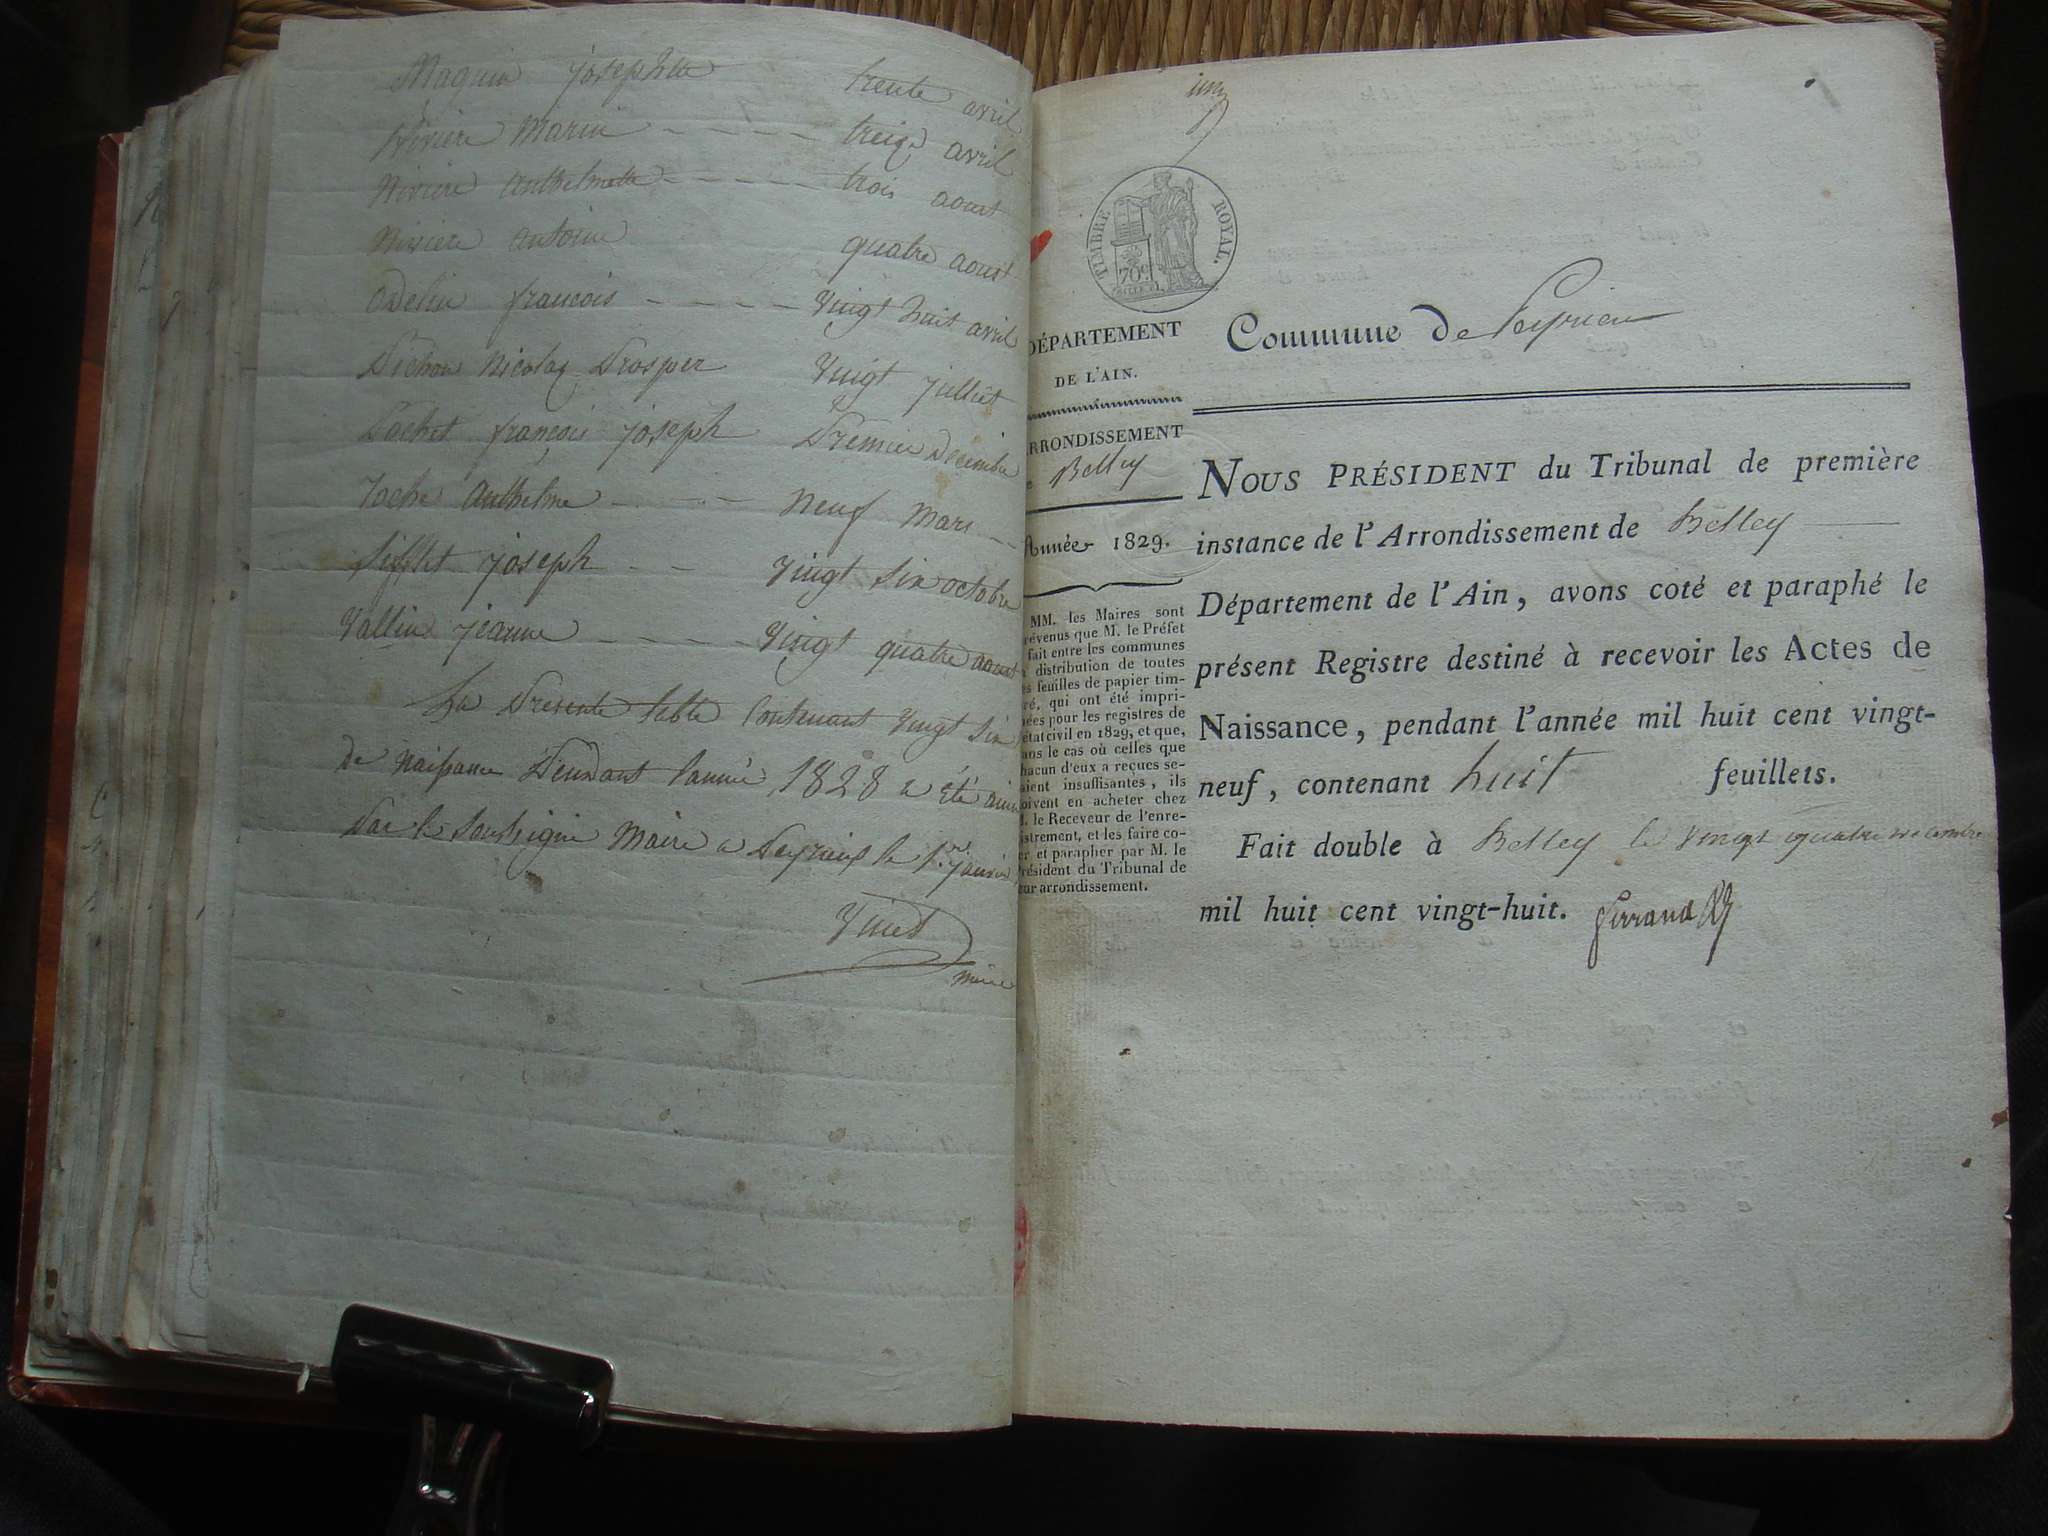 Magnin josephte trente avril
Nivière Marie - - - - treize avril
Nivière anthelmette - - - - trois aoust
Nivière antoine quatre aoust
Odelin françois - - - - Vingt huit avril
Pichon Nicolas Prosper Vingt julliet
Pachet françois joseph Premier Décembre
Anthelme - - - neuf Mars
Sifflet joseph - - Vingt six octobre
Vallin jeanne - - - - Vingt quatre aoust
La Présente table Contenant Vingt six
de naissance Pendant l'année 1828 a été
Par le soussigné Maire a Peyrieux le 1er janvier
Vinet
maire
TIMBRE ROYAL.
70c.
DÉPARTEMENT
DE L'AIN.
RRONDISSEMENT
Belley
Année 1829.
MM. les Maires sont
révenus que M. le Préfet
fait entre les communes
distribution de toutes
s feuilles de papier tim-
ré, qui ont été impri-
ées pour les registres de
état civil en 1829, et que,
ans le cas où celles que
hacun d'eux a reçues se-
aient insuffisantes, ils
oivent en acheter chez
. le Receveur de l'enre-
istrement, et les faire co-
er et parapher par M. le
résident du Tribunal de
ur arrondissement.
Commune de Peyrieu
NOUS PRÉSIDENT du Tribunal de première
instance de l'Arrondissement de Belley
Département de l'Ain, avons coté et paraphé le
présent Registre destiné à recevoir les Actes de
Naissance, pendant l'année mil huit cent vingt-
neuf, contenant huit feuillets.
Fait double à Belley le vingt quatre décembre
mil huit cent vingt-huit.